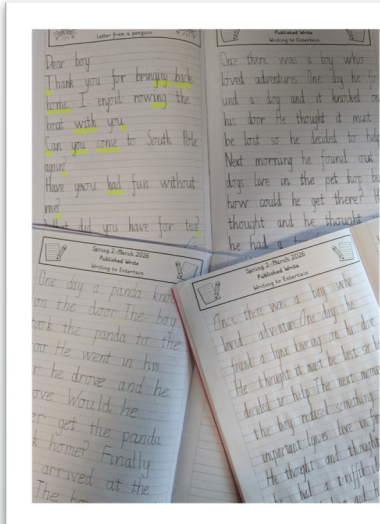 Letter from a penguin
Dear boy
Thank you for bringing back
home I enjoid rowing the
boat with you.
Can you come to South Pole
again?
Have you had fun without
me?
What did you have for tea?
Published Write
Writing to Entertain
Once there was a boy who
loved adventures One day he fo
und a dog and it knocked on
has door He thought it must
be lost so he decided to help
Next morning he found out
dogs live in the pet shop bu
how could he get there? H
thought and he thought
he had a
Spring 2-March 2026
Published Write
Writing to Entertain
One day a panda kno
on the door The boy
took the panda to the
zoo He went in has
he drove and he
ove Would he
er get the panda
k home? Finally
arrived at the
The
Spring 2-March 2026
Published Write
Writing to Entertain
Once there was a boy who
loved adventure One day he
found a tiger on his door
He thought it must be lost so he
decided to help The next morning
the boy something
important live in
He thought and thought
had a